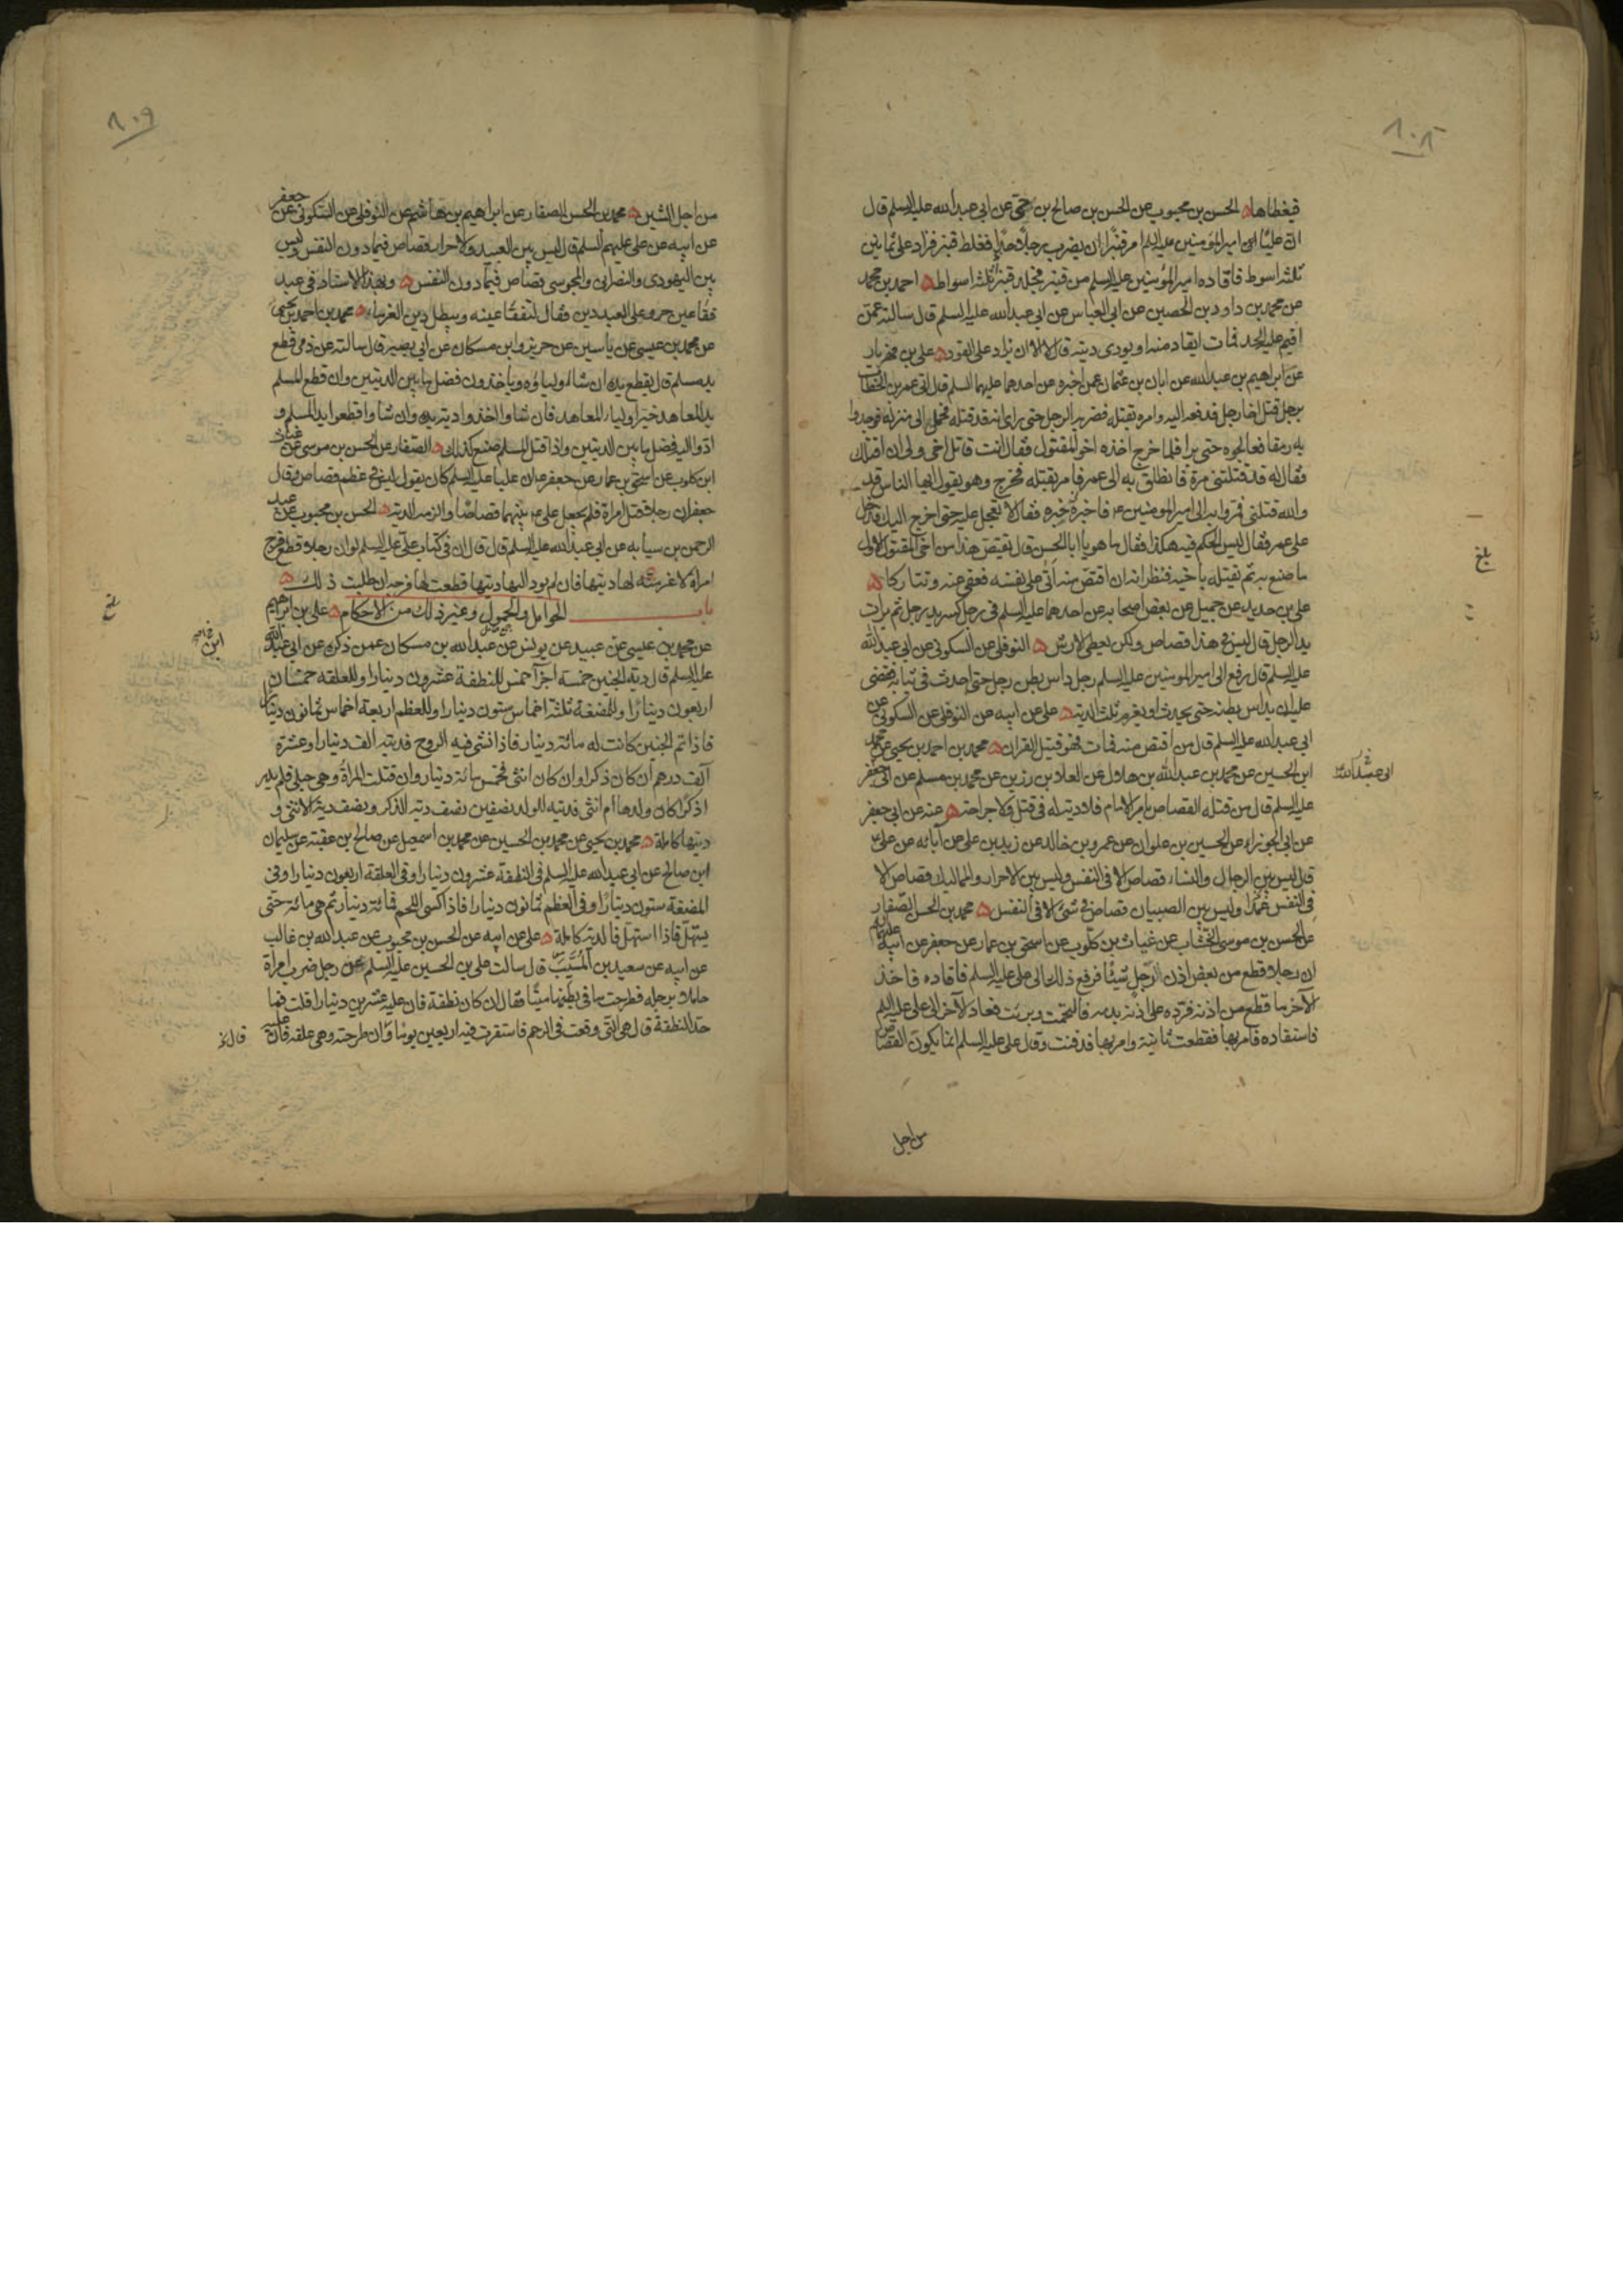 ٨٠٨
فيغطاها الحسن بن محبوب عن الحسن بن صالح بن حي عن ابي عبد الله عليه السلم قال
ان عليا امير المؤمنين عليه السلم امر قنبرا ان يضرب رجلا حدا فغلظ قنبر فزاد على ثمانين
ثلثة اسوط فاقاده امير المؤمنين عليه السلم من قنبر فجلد قنبر ثلثة اسواط احمد بن محمد
عن محمد بن داود بن الحصين عن ابي العباس عن ابي عبد الله عليه السلم قال سالته عمن
اقيم عليه الحد فمات ايقاد منه او يودى ديته قال لا الا ان يزاد على القود على بن مهزيار
عن ابراهيم بن عبد الله عن ابان بن عثمان عمن اخبره عن احدهما عليهما السلم قال اتى عمر بن الخطاب
برجل قتل اخا رجل فدفعه اليه وامره بقتله فضربه الرجل حتى راى انه قد قتله فحمل الى منزله فوجدوا
به رمقا فعالجوه حتى برا فلما خرج اخذه اخو المقتول فقال انت قاتل اخى ولى ان اقتلك
فقال له قد قتلتنى مرة فانطلق به الى عمر فامر بقتله فخرج وهو يقول ايها الناس قد
والله قتلنى فمروا به الى امير المومنين ع فاخبره خبره فقال لا تعجل عليه حتى اخرج اليك فدخل
على عمر فقال ليس الحكم فيه هكذا فقال ما هو يا ابا الحسن قال يقتص هذا من اخى المقتول الاول
ما صنع به ثم يقتله باخيه فنظر انه ان اقتص منه اتى على نفسه فعفى عنه وتتاركا
على بن حديد عن جميل عن بعض اصحابه عن احدهما عليه السلم فى رجل كسر يد رجل ثم برات
يد الرجل قال ليس فى هذا قصاص ولكن يعطى الارش النوفلى عن السكونى عن ابي عبد الله
عليه السلم قال رفع الى امير المومنين عليه السلم رجل داس بطن رجل حتى احدث فى ثيابه فقضى
عليه ان يداس بطنه حتى يحدث او يغرم ثلث الدية على عن ابيه عن النوفلى عن السكونى عن
ابي عبد الله عليه السلم قال من اقتص منه فمات فهو قتيل القران محمد بن احمد بن يحيى عن محمد
ابن الحسين عن محمد بن عبد الله بن هلال عن العلا بن رزين عن محمد بن مسلم عن ابي جعفر
عليه السلم قال من قتله القصاص بامر الامام فلا دية له فى قتل ولا جراحة عنه عن ابي جعفر
عن ابي الجوزاء عن الحسين بن علوان عن عمرو بن خالد عن زيد بن على عن آبائه عن على ع
قال ليس بين الرجال والنساء قصاص الا فى النفس وليس بين الاحرار والمماليك قصاص الا
فى النفس عمدا وليس بين الصبيان قصاص فى شئ الا فى النفس محمد بن الحسن الصفار
عن الحسن بن موسى الخشاب عن غياث بن كلوب عن اسحق بن عمار عن جعفر عن ابيه
ان رجلا قطع من بعض اذن الرجل شيئا فرفع ذلك الى على عليه السلم فاقاده فاخذ
الآخر ما قطع من اذنه فرده على اذنه بدمه فالتحمت وبرئت فعاد الآخر الى على عليه السلم
فاستقاده فامر بها فقطعت ثانية وامر بها فدفنت وقال على عليه السلم انما يكون القصاص
من اجل
بلغ
ابى عبد الله ع
٨٠٩
من اجل الشين محمد بن الحسن الصفار عن ابراهيم بن هاشم عن النوفلى عن السكونى عن جعفر
عن ابيه عن على عليهم السلم قال ليس بين العبيد والاحرار قصاص فيما دون النفس وليس
بين اليهودى والنصرانى والمجوسى قصاص فيما دون النفس وبهذا الاسناد فى عبد
فقا عين حر وعلى العبد دين فقال لتفقا عينه ويبطل دين الغرماء محمد بن احمد بن يحيى
عن محمد بن عيسى عن ياسين عن حريز وابن مسكان عن ابي بصير قال سالته عن ذمى قطع
يد مسلم قال يقطع يده ان شاء اولياؤه وياخذون فضل ما بين الديتين وان قطع المسلم
يد المعاهد خير اولياء المعاهد فان شاوا اخذوا دية يده وان شاوا قطعوا يد المسلم و
ادوا اليه فضل ما بين الديتين واذا قتل المسلم صنع كذلك الصفار عن الحسن بن موسى عن غياث
ابن كلوب عن اسحق بن عمار عن جعفر ع ان عليا عليه السلم كان يقول ليس فى عظم قصاص وقال
جعفر ان رجلا قتل امراة فلم يجعل على ع بينهما قصاصا والزمه الدية الحسن بن محبوب عن عبد
الرحمن بن سيابه عن ابي عبد الله عليه السلم قال قال ان فى كتاب على عليه السلم لو ان رجلا قطع فرج
امراة لاغرمته لها ديتها فان لم يود اليها ديتها قطعت لها فرجه ان طلبت ذلك
باب الحوامل والحمول وغير ذلك من الاحكام على بن ابراهيم
عن محمد بن عيسى عن عبيد عن يونس عن عبد الله بن مسكان عمن ذكره عن ابي عبد الله
عليه السلم قال دية الجنين خمسة اجزآ خمس للنطفة عشرون دينارا وللعلقه خمسان
اربعون دينارا وللمضغة ثلثة اخماس ستون دينارا وللعظم اربعة اخماس ثمانون دينارا
فاذا تم الجنين كانت له مائة دينار فاذا انشى فيه الروح فديته الف دينار او عشرة
آلف درهم ان كان ذكرا وان كان انثى فخمس مائة دينار وان قتلت المراة وهى حبلى فلم يدر
اذكرا كان ولدها ام انثى فدية للولد نصفين نصف دية الذكر ونصف دية الانثى و
ديتها كاملة محمد بن يحيى عن محمد بن الحسين عن محمد بن اسمعيل عن صالح بن عقبة عن سليمان
ابن صالح عن ابي عبد الله عليه السلم فى النطفة عشرون دينارا وفى العلقة اربعون دينارا وفى
المضغة ستون دينارا وفى العظم ثمانون دينارا فاذا كسى اللحم فمائة دينار ثم هى مائة حتى
يستهل فاذا استهل فالدية كاملة على عن ابيه عن الحسن بن محبوب عن عبد الله بن غالب
عن ابيه عن سعيد بن المسيب قال سالت على بن الحسين عليه السلم عن رجل ضرب امراة
حاملا برجله فطرحت ما فى بطنها ميتا فقال ان كان نطفة فان عليه عشرين دينارا قلت فما
حد النطفة قال هى التى وقعت فى الرحم فاستقرت فيه اربعين يوما وان طرحته وهى علقه فان عليه
قال
بلغ